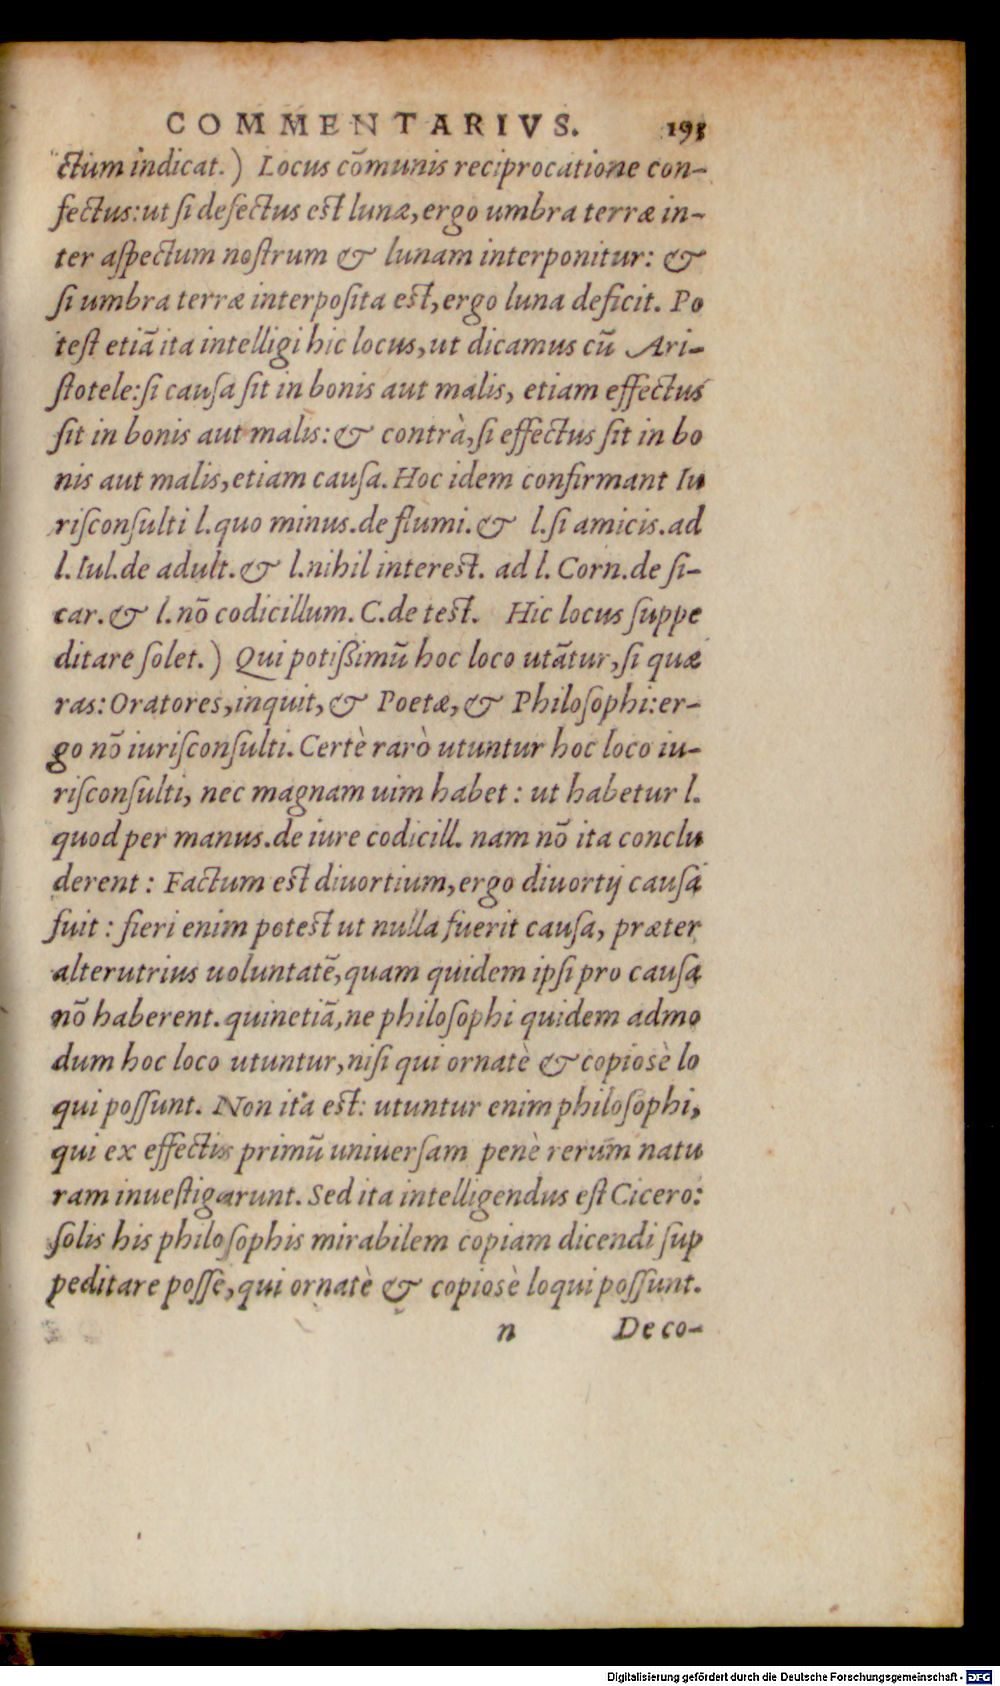 COMMENTARIVS. 193
ctum indicat.) Locus cōmunis reciprocatione con-
fectus: ut ſi defectus eſt lunæ, ergo umbra terræ in-
ter aſpectum noſtrum & lunam interponitur: &
ſi umbra terræ interpoſita eſt, ergo luna deficit. Po
teſt etiā ita intelligi hic locus, ut dicamus cū Ari-
ſtotele: ſi cauſa ſit in bonis aut malis, etiam effectus
ſit in bonis aut malis: & contrà, ſi effectus ſit in bo
nis aut malis, etiam cauſa. Hoc idem confirmant Iu
riſconſulti l. quo minus. de flumi. & l. ſi amicis. ad
l. Iul. de adult. & l. nihil intereſt. ad l. Corn. de ſi-
car. & l. nō codicillum. C. de teſt. Hic locus ſuppe
ditare ſolet.) Qui potißimū hoc loco utātur, ſi quæ
ras: Oratores, inquit, & Poetæ, & Philoſophi: er-
go nō iuriſconſulti. Certè rarò utuntur hoc loco iu-
riſconſulti, nec magnam uim habet: ut habetur l.
quod per manus. de iure codicill. nam nō ita conclu
derent: Factum eſt diuortium, ergo diuortij cauſa
fuit: fieri enim poteſt ut nulla fuerit cauſa, præter
alterutrius uoluntatē, quam quidem ipſi pro cauſa
nō haberent. quinetiā, ne philoſophi quidem admo
dum hoc loco utuntur, niſi qui ornatè & copiosè lo
qui poſſunt. Non ita eſt: utuntur enim philoſophi,
qui ex effectis primū uniuerſam penè rerum natu
ram inueſtigarunt. Sed ita intelligendus eſt Cicero:
ſolis his philoſophis mirabilem copiam dicendi ſup
peditare poſſe, qui ornatè & copiosè loqui poſſunt.
n De co-
Digitalisierung gefördert durch die Deutsche Forschungsgemeinschaft - DFG